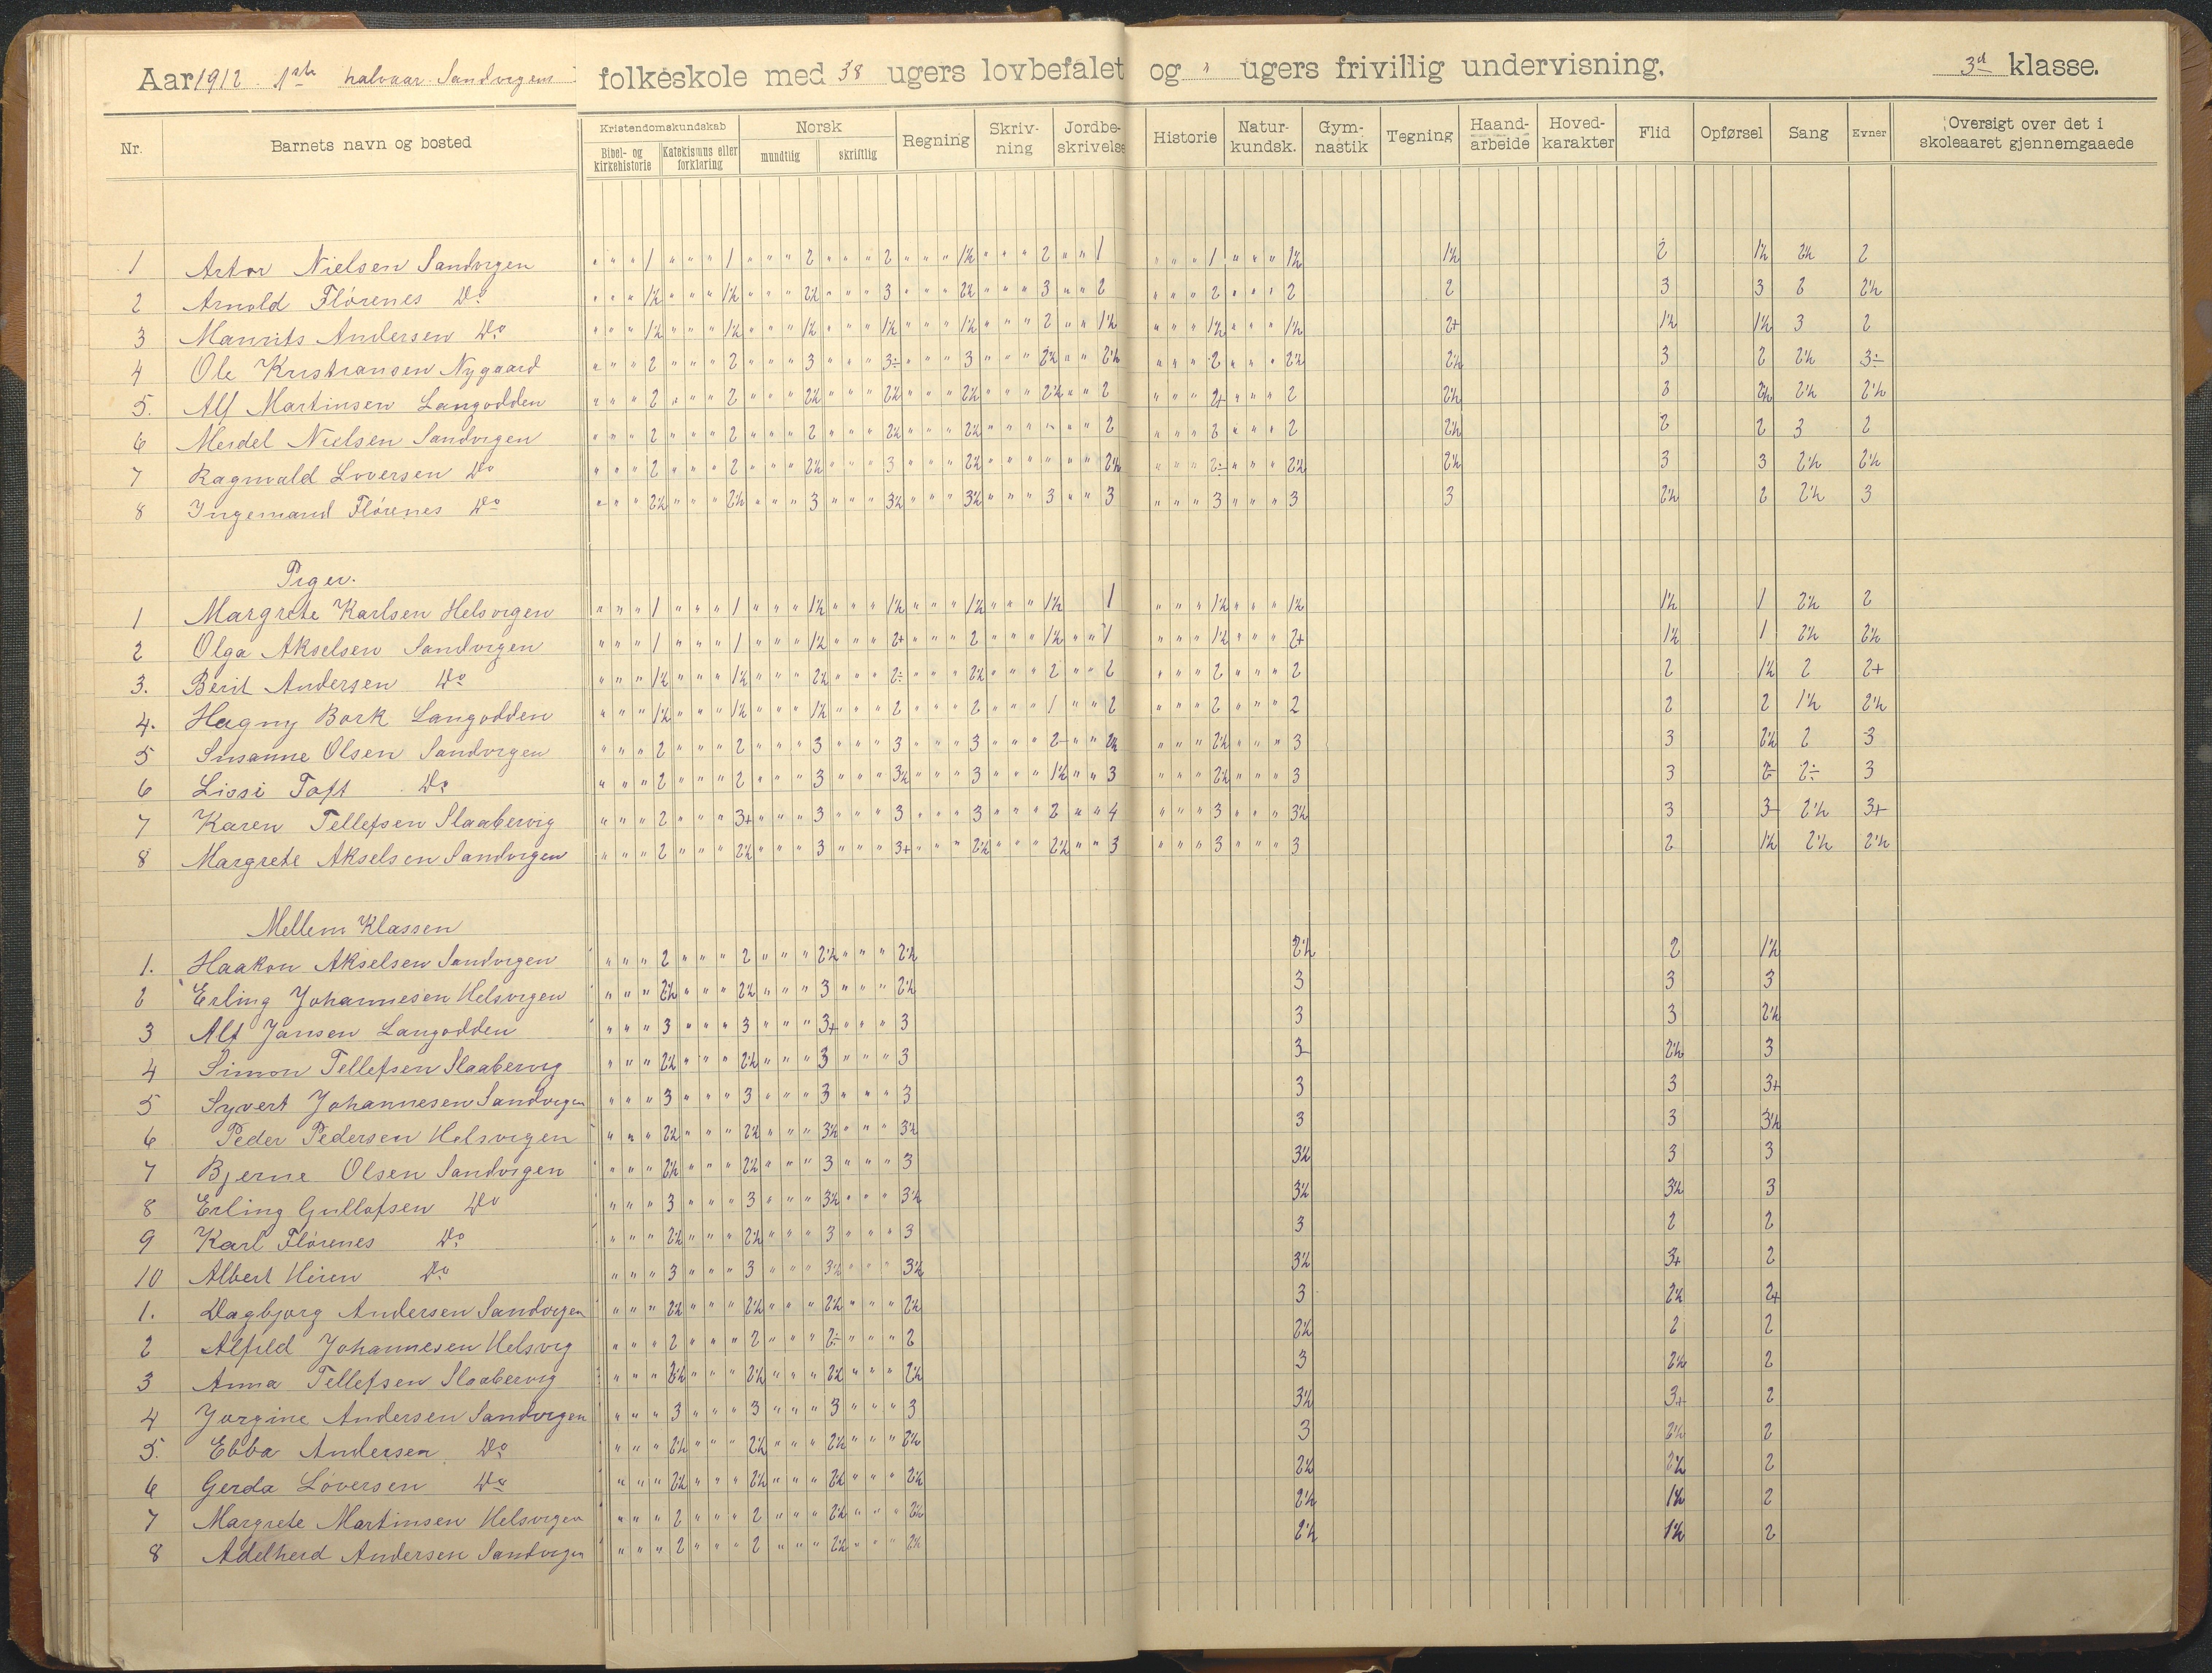 Aar 1912. 1ste halvaar. Sandvigens folkeskole med 38 ugers lovbefalet og " ugers frivillig undervisning. 3d klasse.
Nr. Barnets navn og bosted Kristendomskundskab Norsk Regning Skriv-ning Jordbe-skrivelse Historie Natur-kundsk. Gym-nastik Tegning Haand-arbeide Hoved-karakter Flid Opførsel Sang Evner Oversigt over det i skoleaaret gjennemgaaede
Bibel- og kirkehistorie Katekismus eller forklaring mundtlig skriftlig
1 Artor Nielsen Sandvigen " " " 1 " " " 1 " " " 2 " " " 2 " " " 1½ " " " 2 " " 1 " " " 1 " " " 1½ 1½ 2 1½ 2½ 2
2 Arnold Flörenes Do " " " 1½ " " " 1½ " " " 2½ " " " 3 " " " 2½ " " " 3 " " 2 " " " 2 " " " 2 2 3 3 2 2½
3 Maurits Andersen Do " " " 1½ " " " 1½ " " " 1½ " " " 1½ " " " 1½ " " " 2 " " 1½ " " " 1½ " " " 1½ 2+ 1½ 1½ 3 2
4 Ole Kristiansen Nygaard " " " 2 " " " 2 " " " 3 " " " 3÷ " " " 3 " " " 2½ " " 2½ " " " 2 " " " 2½ 2½ 3 2 2½ 3÷
5. Alf Martinsen Langodden " " " 2 " " " 2 " " " 2½ " " " 2½ " " " 2½ " " " 2½ " " 2 " " " 2+ " " " 2 2½ 3 2½ 2½ 2½
6 Meidel Nielsen Sandvigen " " " 2 " " " 2 " " " 2 " " " 2½ " " " 2½ " " " " " " 2 " " " 2 " " " 2 2½ 2 2 3 2
7 Ragnvald Loversen Do " " " 2 " " " 2 " " " 2½ " " " 3 " " " 2½ " " " " " " 2½ " " " 2÷ " " " 2½ 2½ 3 3 2½ 2½
8 Ingemand Flörenes Do " " " 2½ " " " 2½ " " " 3 " " " 3½ " " " 3½ " " " 3 " " 3 " " " 3 " " " 3 3 2½ 2 2½ 3
Piger.
1 Margrete Karlsen Helsvigen " " " 1 " " " 1 " " " 1½ " " " 1½ " " " 1½ " " " 1½ 1 " " " 1½ " " " 1½ 1½ 1 2½ 2
2 Olga Akselsen Sandvigen " " " 1 " " " 1 " " " 1½ " " " 2+ " " " 2 " " " 1½ " " 1 " " " 1½ " " " 2+ 1½ 1 2½ 2½
3. Berit Andersen Do " " " 1½ " " " 1½ " " " 2½ " " " 2÷ " " " 2½ " " " 2 " " 2 " " " 2 " " " 2 2 1½ 2 2+
4. Hagny Bork Langodden " " " 1½ " " " 1½ " " " 1½ " " " 2 " " " 2 " " " 1 " " 2 " " " 2 " " " 2 2 2 1½ 2½
5 Susanne Olsen Sandvigen " " " 2 " " " 2 " " " 3 " " " 3 " " " 3 " " " 2 " " 2½ " " " 2½ " " " 3 3 2½ 2 3
6 Lissi Toft Do " " " 2 " " " 2 " " " 3 " " " 3½ " " " 3 " " " 1½ " " 3 " " " 2½ " " " 3 3 2÷ 2÷ 3
7 Karen Tellefsen Slaabervig " " " 2 " " " 3+ " " " 3 " " " 3 " " " 3 " " " 2 " " 4 " " " 3 " " " 3½ 3 3 2½ 3+
8 Margrete Akselsen Sandvigen " " " 2 " " " 2½ " " " 3 " " " 3+ " " " 2½ " " " 2½ " " 3 " " " 3 " " " 3 2 1½ 2½ 2½
Mellem Klassen
1. Haakon Akselsen Sandvigen " " " 2 " " " 2 " " " 2½ " " " 2½ 2½ 2 1½
2 Erling Johannesen Helsvigen " " " 2½ " " " 2½ " " " 3 " " " 2½ 3 3 3
3 Alf Jansen Langodden " " " 3 " " " 3 " " " 3+ " " " 3 3 3 2½
4 Simon Tellefsen Slaabervig " " " 2½ " " " 2½ " " " 3 " " " 3 3 2½ 3
5 Syvert Johannesen Sandvigen " " " 3 " " " 3 " " " 3 " " " 3 3 3 3+
6 Peder Pedersen Helsvigen " " " 2½ " " " 2½ " " " 3½ " " " 3½ 3 3 3½
7 Bjerne Olsen Sandvigen " " " 2½ " " " 2½ " " " 3 " " " 3 3½ 3 3
8 Erling Gullafsen Do " " " 3 " " " 3 " " " 3½ " " " 3½ 3½ 3½ 3
9 Karl Flörenes Do " " " 2½ " " " 2½ " " " 3 " " " 3 3 2 2
10 Albert Heien Do " " " 3 " " " 3 " " " 3½ " " " 3½ 3½ 3+ 2
1. Dagbjorg Andersen Sandvigen " " " 2½ " " " 2½ " " " 2½ " " " 2½ 3 2½ 2+
2 Alfild Johannesen Helsvig " " " 2 " " " 2 " " " 2÷ " " " 2 2½ 2 2
3 Anna Tellefsen Slaabervig " " " 2½ " " " 2½ " " " 2½ " " " 2½ 3 2½ 2
4 Jorgine Andersen Sandvigen " " " 3 " " " 3 " " " 3 " " " 3 3½ 3+ 2
5. Ebba Andersen Do " " " 2½ " " " 2½ " " " 2½ " " " 2½ 3 2½ 2
6 Gerda Loversen Do " " " 2½ " " " 2½ " " " 2½ " " " 2½ 2½ 2½ 2
7 Margrete Martinsen Helsvigen " " " 2 " " " 2 " " " 2½ " " " 2½ 2½ 1½ 2
8 Adelheid Andersen Sandvigen " " " 2 " " " 2 " " " 2½ " " " 2½ 2½ 1½ 2